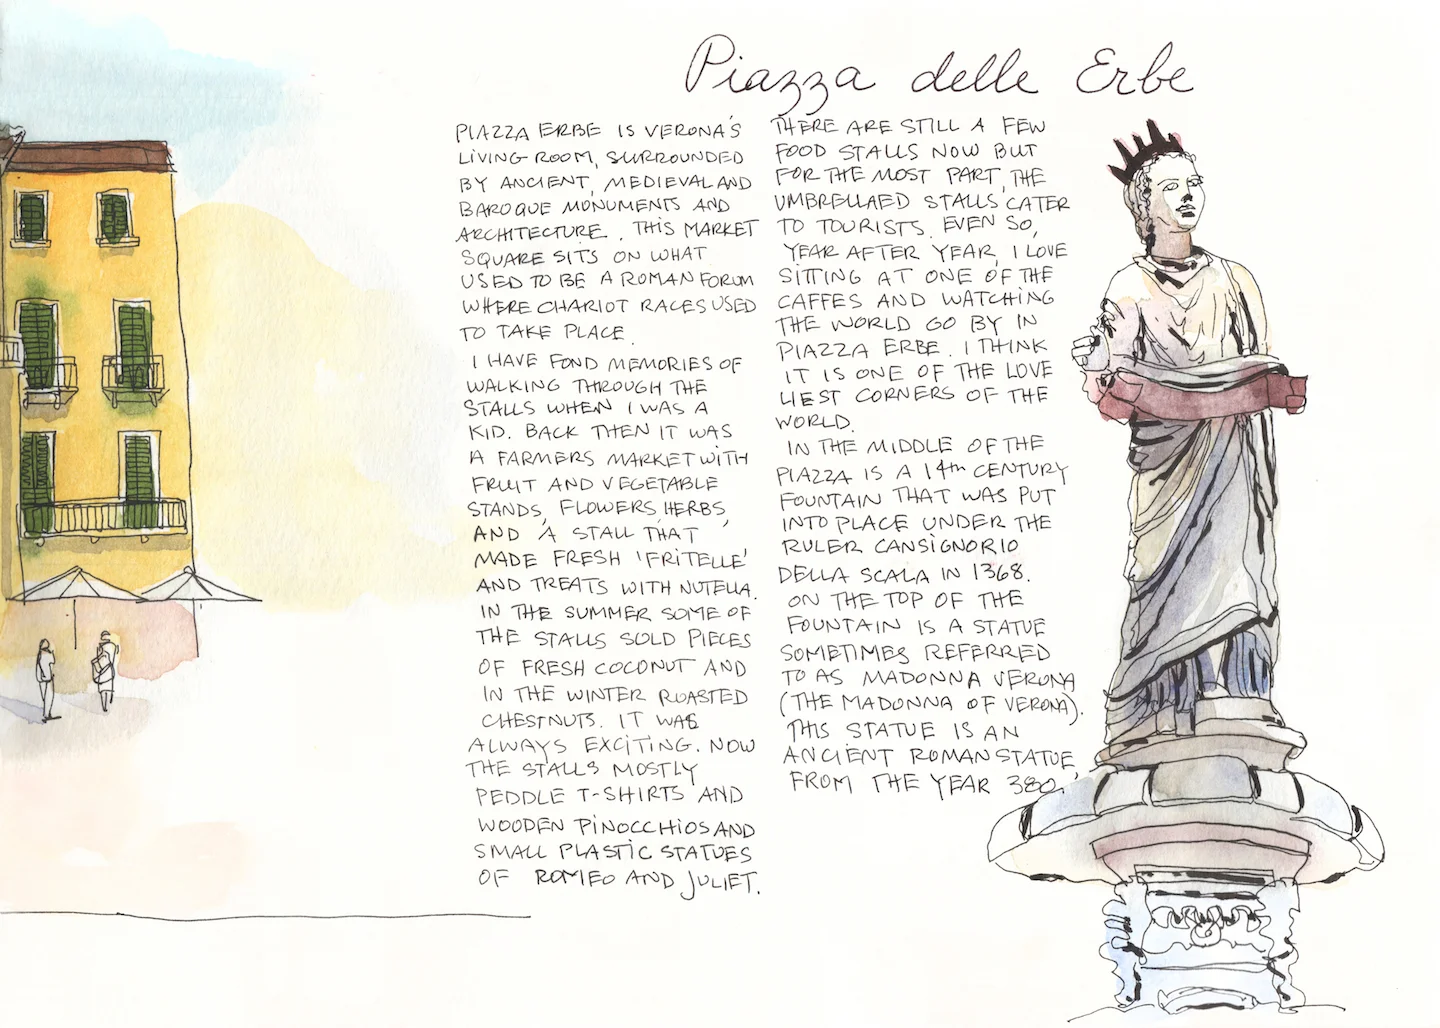 Piazza delle Erbe
PIAZZA ERBE IS VERONA'S
LIVING ROOM, SURROUNDED
BY ANCIENT, MEDIEVAL AND
BAROQUE MONUMENTS AND
ARCHITECTURE. THIS MARKET
SQUARE SITS ON WHAT
USED TO BE A ROMAN FORUM
WHERE CHARIOT RACES USED
TO TAKE PLACE.
I HAVE FOND MEMORIES OF
WALKING THROUGH THE
STALLS WHEN I WAS A
KID. BACK THEN IT WAS
A FARMERS MARKET WITH
FRUIT AND VEGETABLE
STANDS, FLOWERS, HERBS,
AND A STALL THAT
MADE FRESH 'FRITELLE'
AND TREATS WITH NUTELLA.
IN THE SUMMER SOME OF
THE STALLS SOLD PIECES
OF FRESH COCONUT AND
IN THE WINTER ROASTED
CHESTNUTS. IT WAS
ALWAYS EXCITING. NOW
THE STALLS MOSTLY
PEDDLE T-SHIRTS AND
WOODEN PINOCCHIOS AND
SMALL PLASTIC STATUES
OF ROMEO AND JULIET.
THERE ARE STILL A FEW
FOOD STALLS NOW BUT
FOR THE MOST PART, THE
UMBRELLAED STALLS CATER
TO TOURISTS. EVEN SO,
YEAR AFTER YEAR, I LOVE
SITTING AT ONE OF THE
CAFFES AND WATCHING
THE WORLD GO BY IN
PIAZZA ERBE. I THINK
IT IS ONE OF THE LOVE
LIEST CORNERS OF THE
WORLD.
IN THE MIDDLE OF THE
PIAZZA IS A 14th CENTURY
FOUNTAIN THAT WAS PUT
INTO PLACE UNDER THE
RULER CANSIGNORIO
DELLA SCALA IN 1368.
ON THE TOP OF THE
FOUNTAIN IS A STATUE
SOMETIMES REFERRED
TO AS MADONNA VERONA
(THE MADONNA OF VERONA).
THIS STATUE IS AN
ANCIENT ROMAN STATUE,
FROM THE YEAR 380.